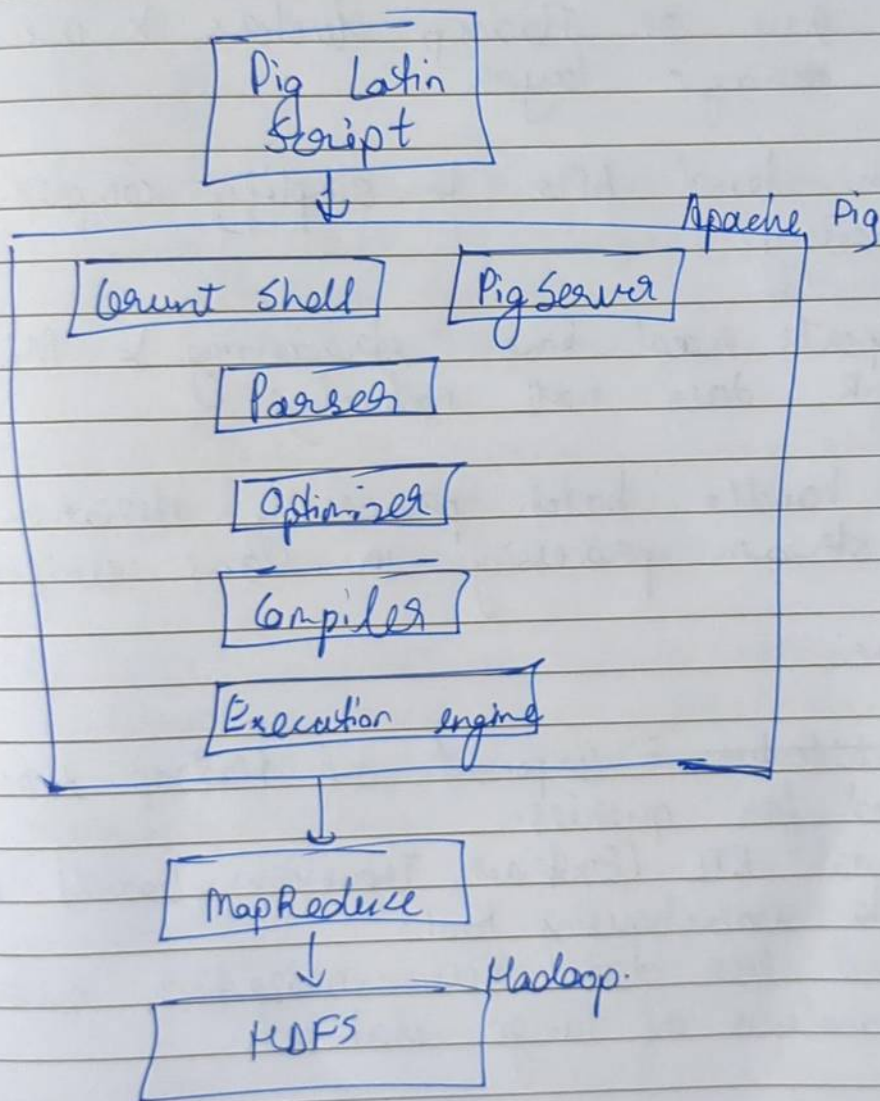 Pig Latin
Script
Apache Pig
Grunt Shell
PigServer
Parser
Optimizer
Compiler
Execution engine
MapReduce
Hadoop.
HDFS